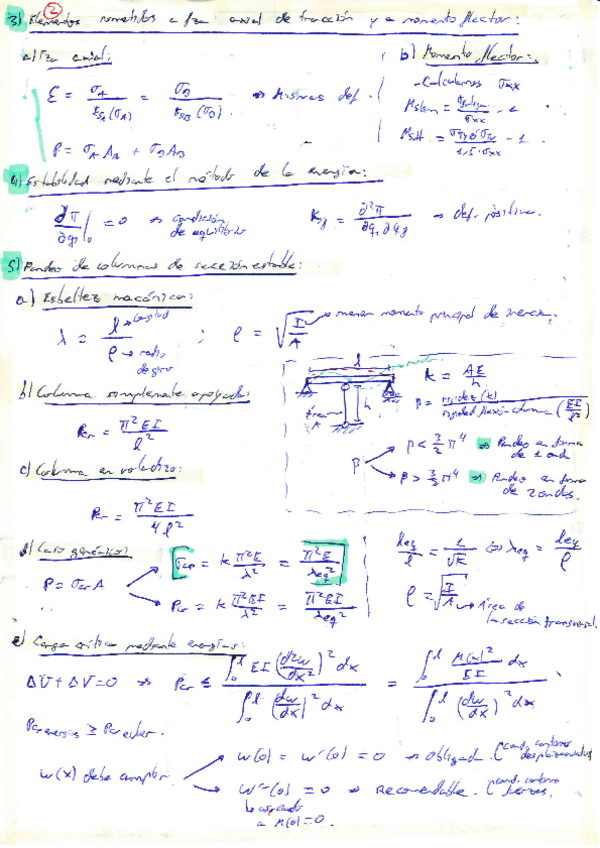 ②
3) Elementos sometidos a fza axial de tracción y a momento flector:
a) Fza axial:
ε = σA / EsA(σA) = σB / EsB(σB) ⇒ Mismas def.
P = σA AA + σB AB
b) Momento flector:
- Calculamos σxx
4) Estabilidad mediante el método de la energía:
∂π/∂qi |0 = 0 ⇒ condición de equilibrio
Kij = ∂²π / ∂qi ∂qj ⇒ def. positiva.
5) Pandeo de columnas de sección estable:
a) Esbeltez mecánica:
λ = l → longitud / ρ → radio de giro ; ρ = √(I/A) → menor momento principal de inercia
b) Columna simplemente apoyada:
Pcr = π²EI / l²
l
h
área A
k = AE / h
β = rigidez (k) / rigidez flexión columna (EI/l³)
β
β < 3/2 π⁴ ⇒ Pandeo en forma de 1 onda
β > 3/2 π⁴ ⇒ Pandeo en forma de 2 ondas.
c) Columna en voladizo:
Pcr = π²EI / 4l²
d) Caso genérico:
P = σcr A
σcr = k π²E / λ² = π²E / λeq²
Pcr = k π²EI / λ² = π²EI / λeq²
leq / l = 1 / √k ⇔ λeq = leq / ρ
ρ = √(I/A) → Área de la sección transversal.
e) Carga crítica mediante energías:
ΔU + ΔV = 0 ⇒ Pcr ≤ ∫₀ˡ EI (d²w/dx²)² dx / ∫₀ˡ (dw/dx)² dx = ∫₀ˡ M(x)²/EI dx / ∫₀ˡ (dw/dx)² dx
Pcr energías ≥ Pcr euler.
w(x) debe cumplir
w(0) = w'(0) = 0 ⇒ obligad. (cond. contorno desplazamientos
w''(0) = 0 ⇒ Recomendable. (cond. contorno fuerzas.
a M(0) = 0.